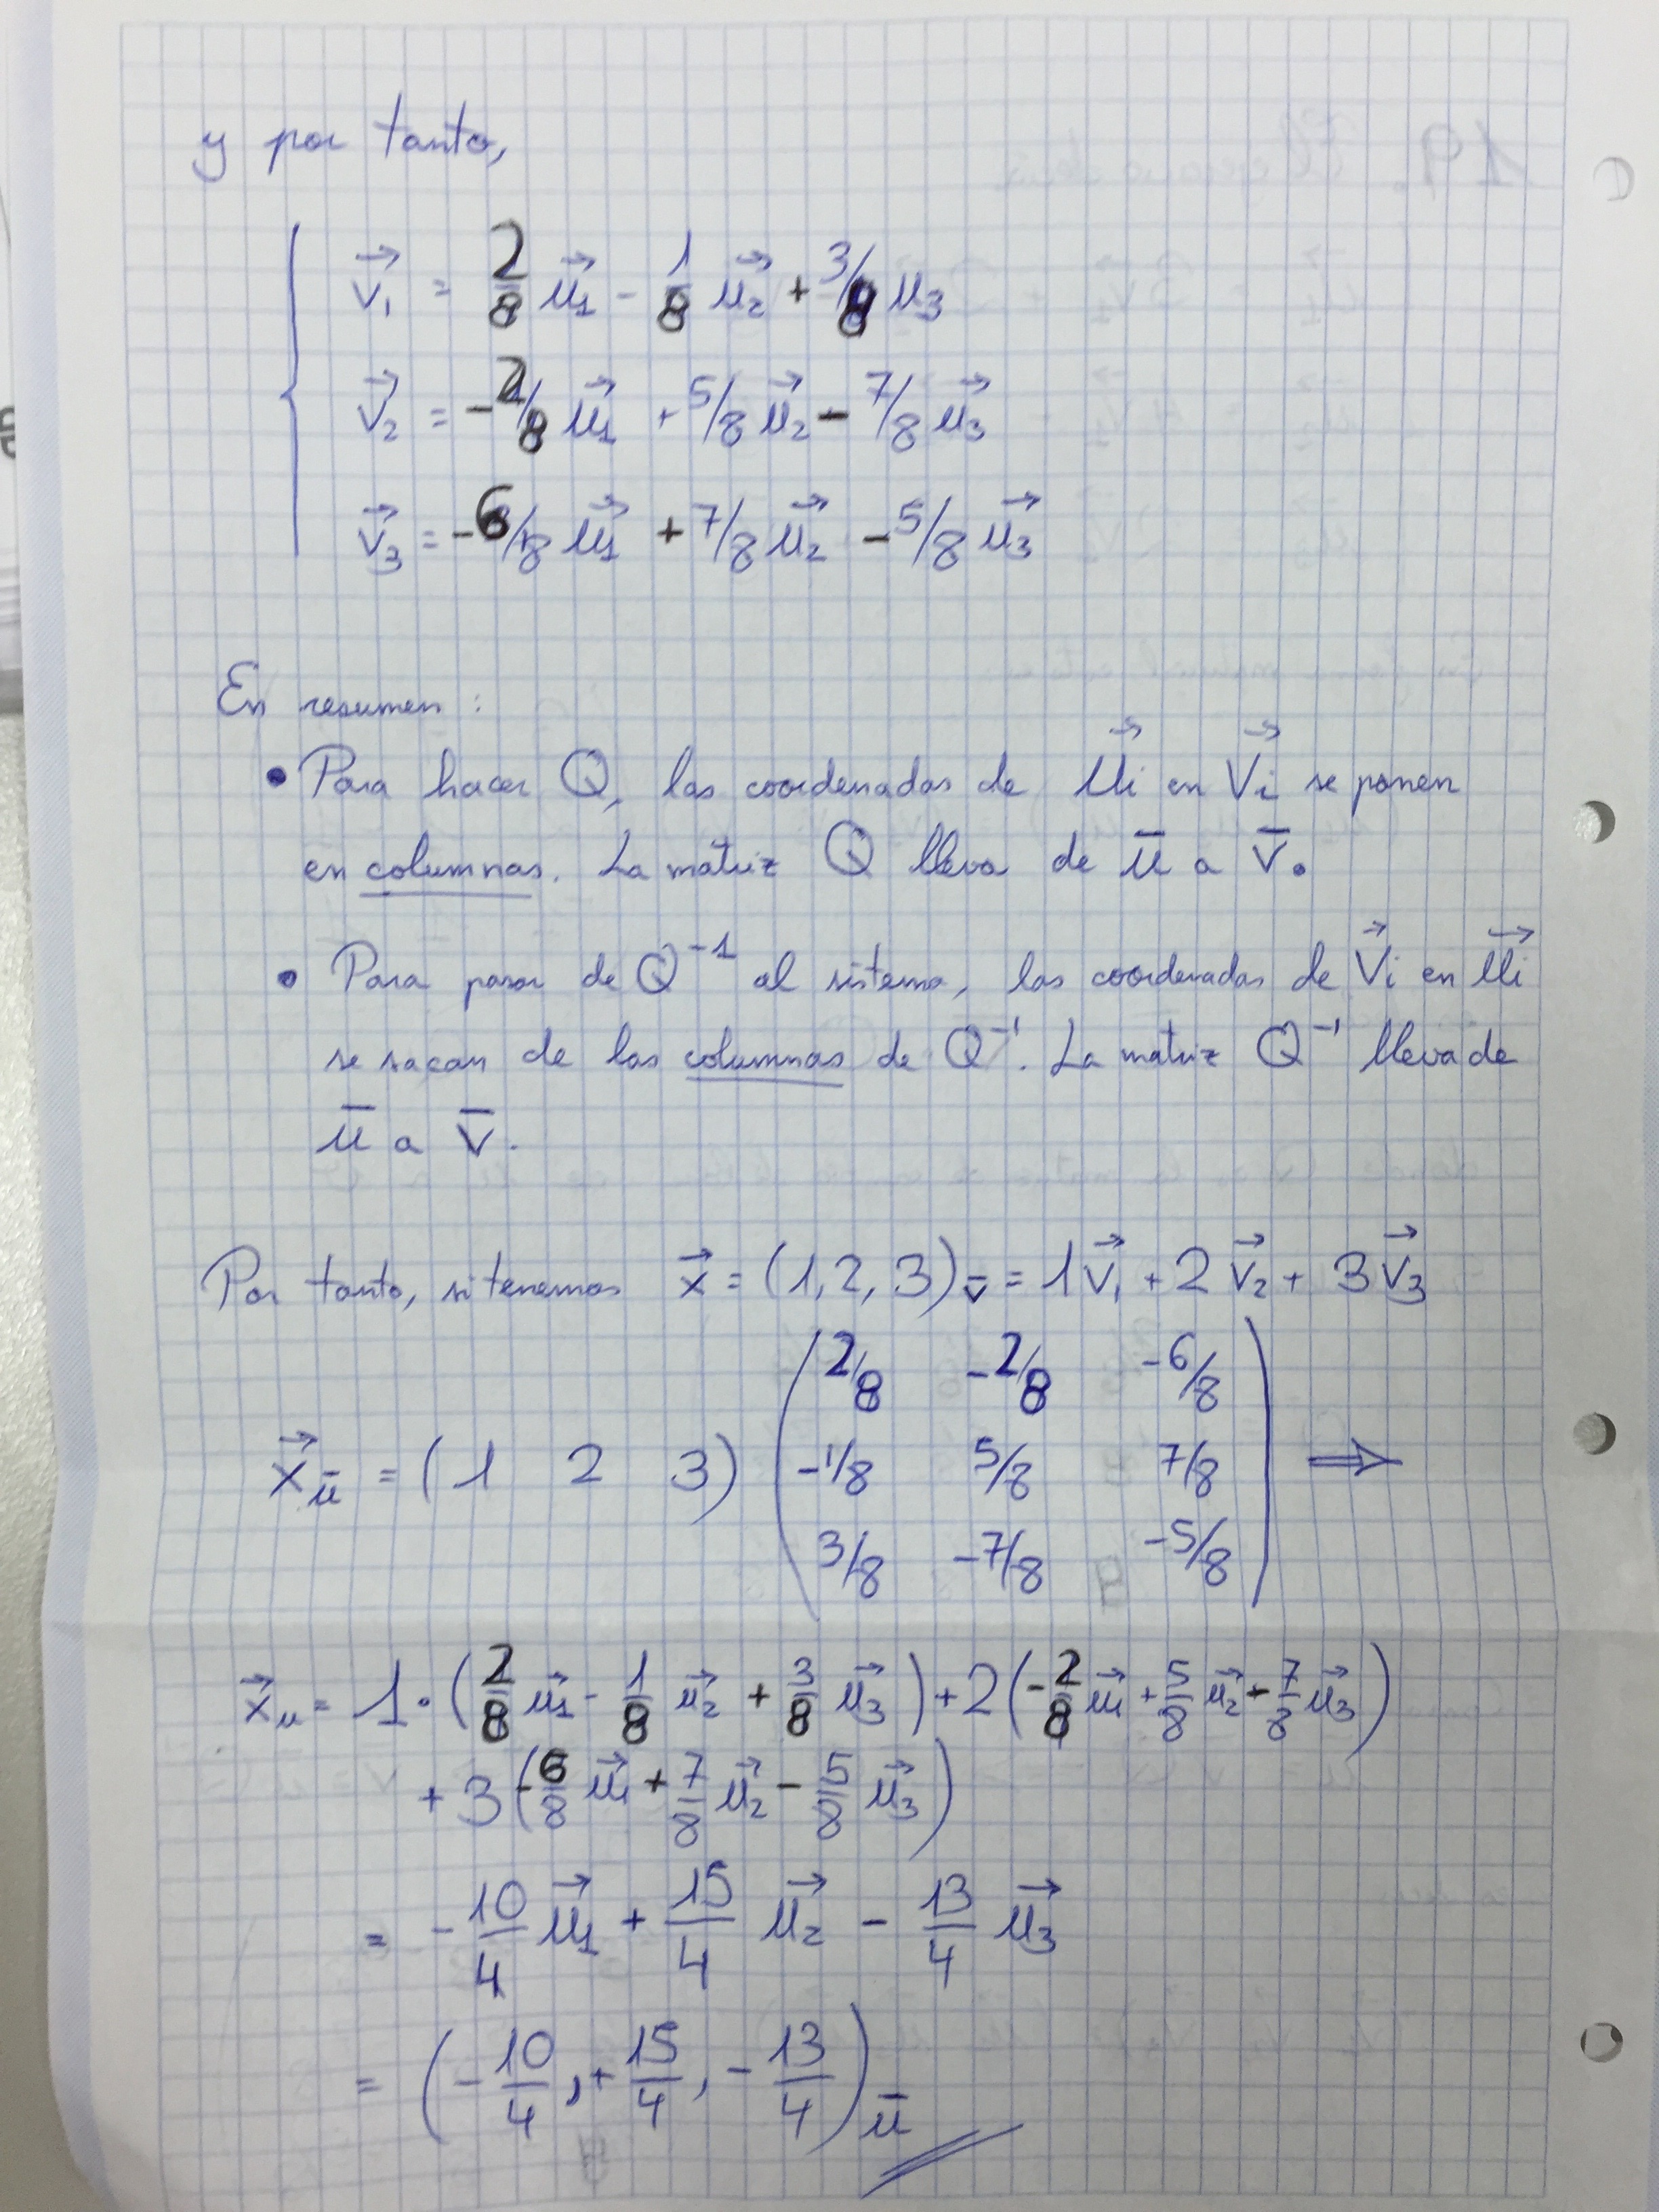 y por tanto,
v₁ = 2/8 u₁ - 1/8 u₂ + 3/8 u₃
v₂ = -2/8 u₁ + 5/8 u₂ - 7/8 u₃
v₃ = -6/8 u₁ + 7/8 u₂ - 5/8 u₃
En resumen:
• Para hacer Q, las coordenadas de uᵢ en vᵢ se ponen
en columnas. La matriz Q lleva de u̅ a v̅.
• Para pasar de Q⁻¹ al sistema, las coordenadas de vᵢ en uᵢ
se sacan de las columnas de Q⁻¹. La matriz Q⁻¹ lleva de
u̅ a v̅.
Por tanto, si tenemos x = (1, 2, 3)v̅ = 1v₁ + 2v₂ + 3v₃
2/8 -2/8 -6/8
xu̅ = (1 2 3) -1/8 5/8 7/8 ⇒
3/8 -7/8 -5/8
xu = 1·(2/8 u₁ - 1/8 u₂ + 3/8 u₃) + 2(-2/8 u₁ + 5/8 u₂ - 7/8 u₃)
+ 3(-6/8 u₁ + 7/8 u₂ - 5/8 u₃)
= -10/4 u₁ + 15/4 u₂ - 13/4 u₃
= (-10/4, +15/4, -13/4)u̅